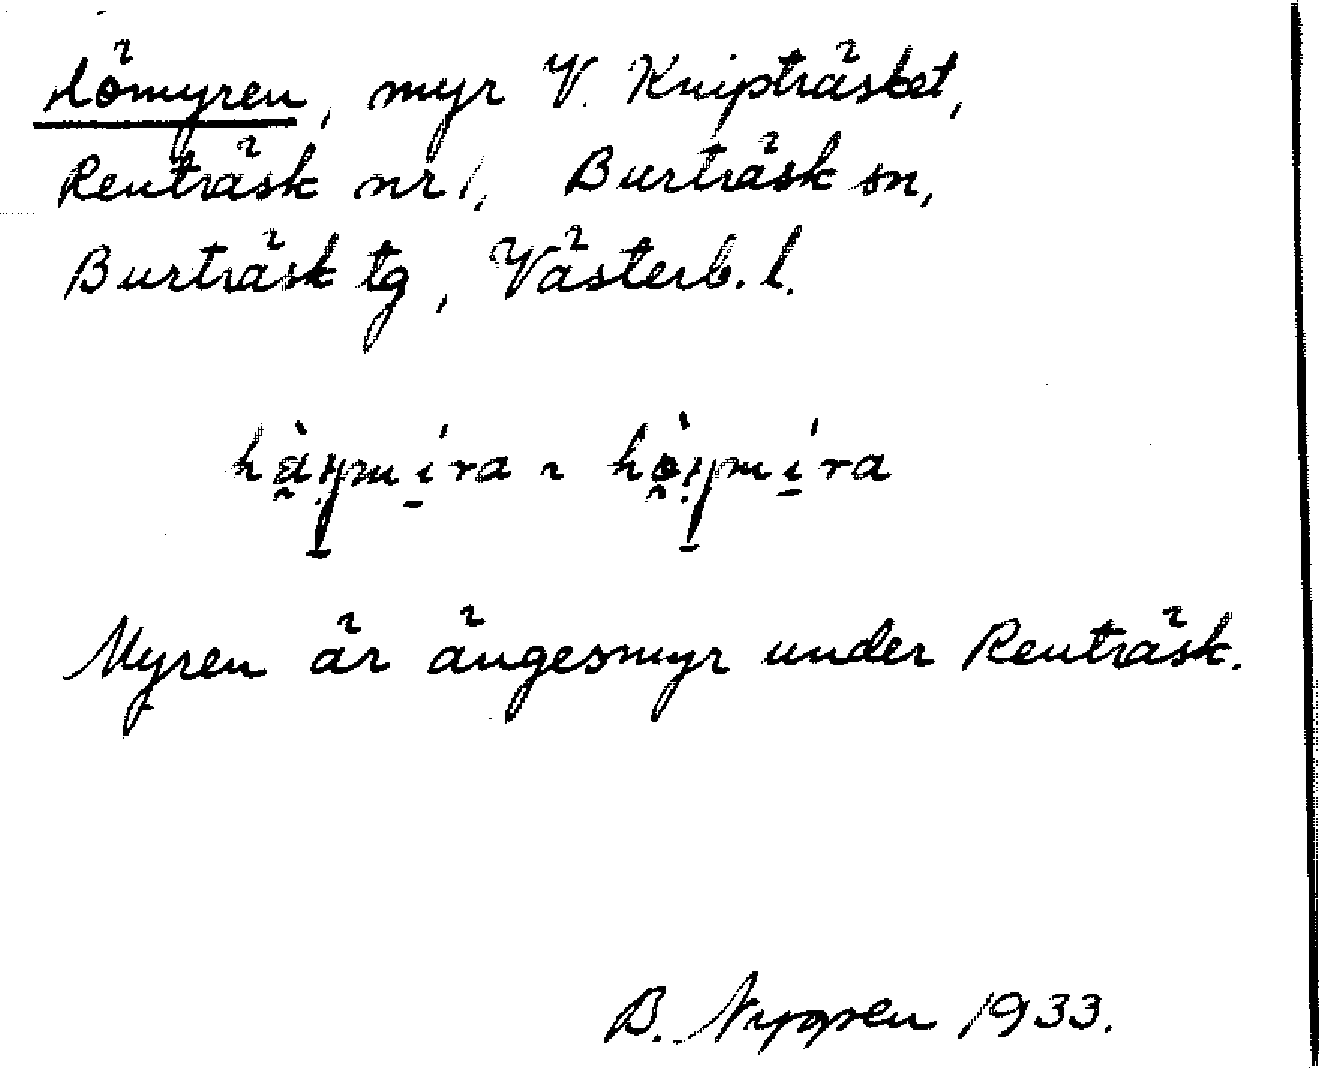 Hömyren, myr V. Knipträsket,
Renträsk nr 1, Burträsk sn,
Burträsk tg, Västerb. l.
Myren är ängesmyr under Renträsk.
B. Nygren 1933.